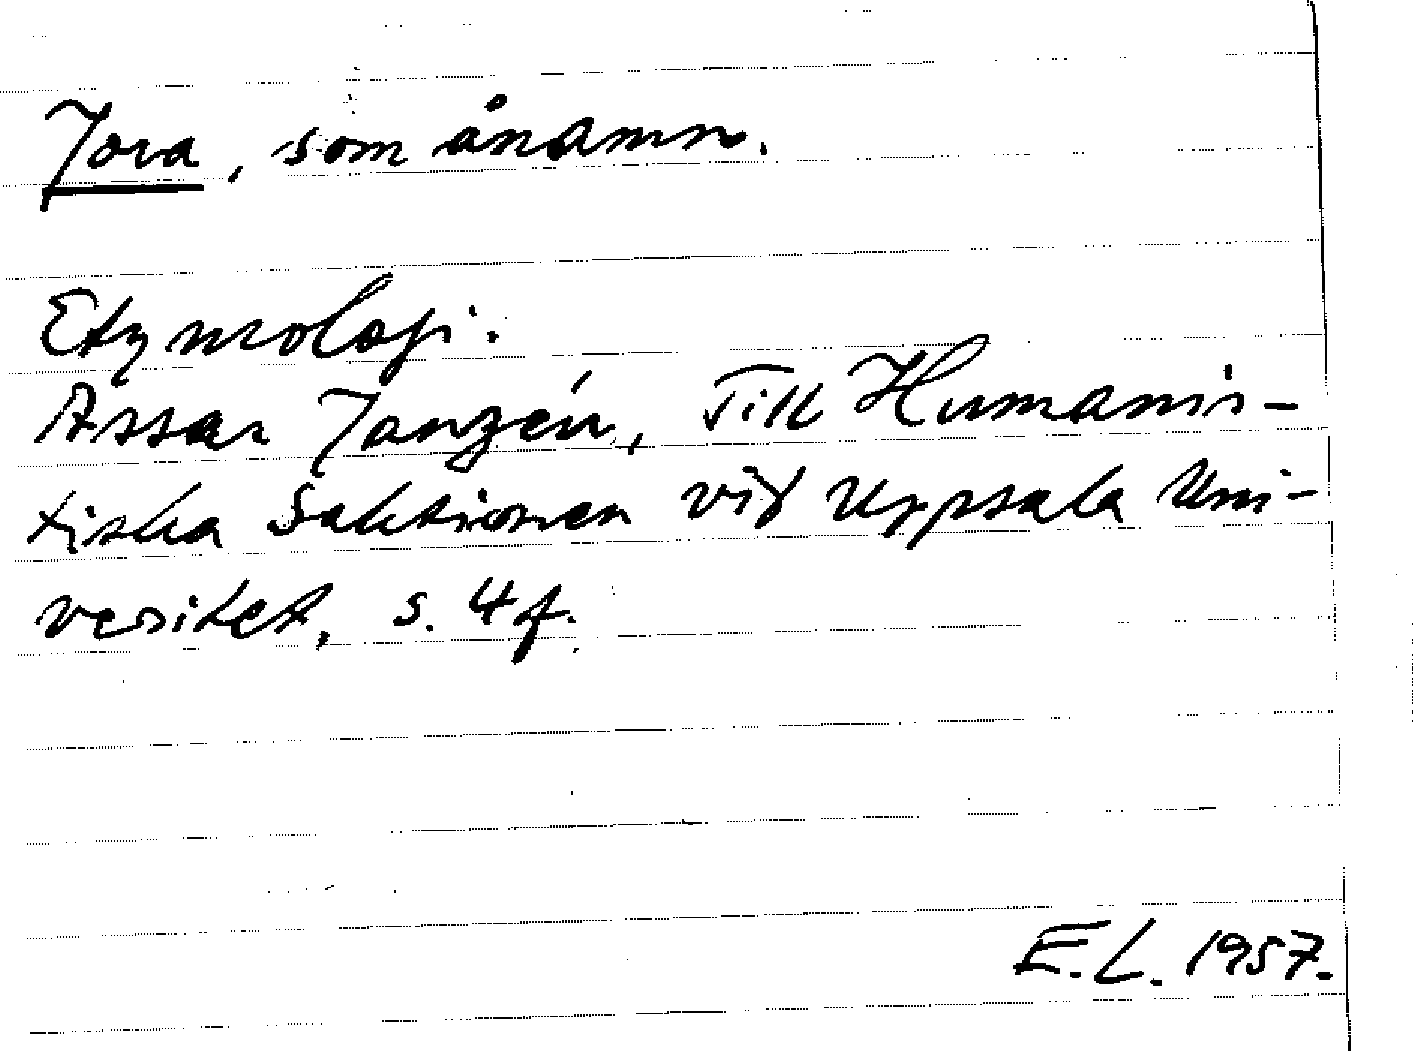 Jora, som ånamn.
Etymologi.
Assar Janzén, Till Humanis-
tiska Sektionen vid Uppsala Uni-
versitet, s. 4 f.
E.L. 1957.